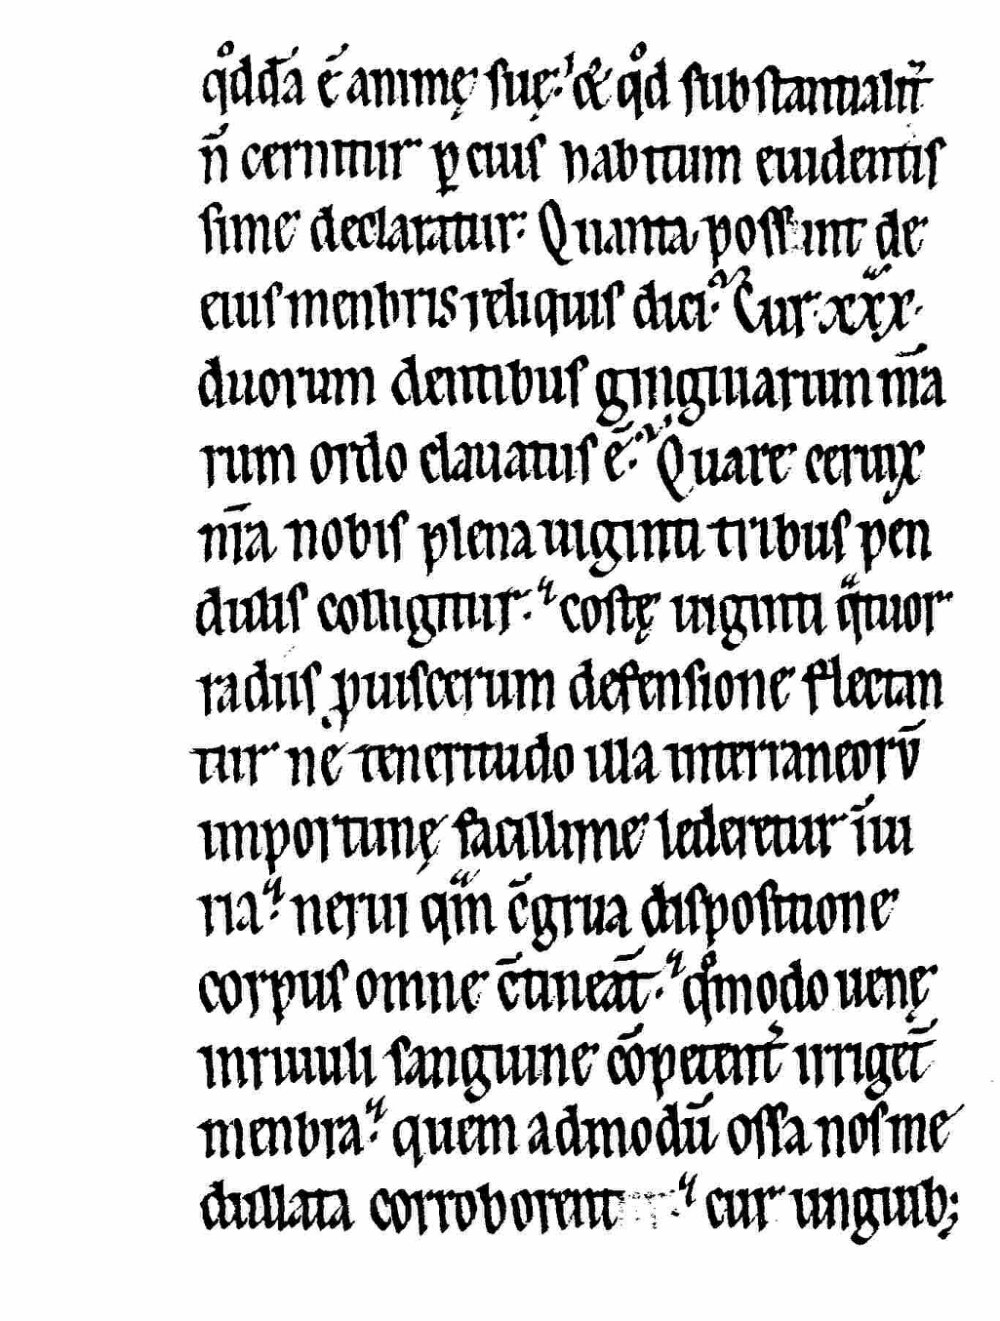 qͦdda ē animę suę: & qͦd substantialit̄
n̄ cernitur ꝑ eius habitum euidentis
sime declaratur: Quanta possint de
eius menbris reliquis dici? Cur xxx
duorum dentibus gingiuarum nr̄a
rum ordo clauatus ē? Quare ceruix
nr̄a nobis plena uiginti tribus pen
dulis colligitur? costę uiginti qͣtuor
radiis ꝓ uiscerum defensione flectan
tur ne teneritudo illa interraneorū
importunę facillime lederetur īiu
ria? nerui qͫm c̄grua dispositione
corpus omne c̄tineat̄? qͦmodo uenę
inriuuli sanguine cōpetent̉ irriget̄
menbra? quem admodū ossa nos me
dullata corroborent ? cur unguib;